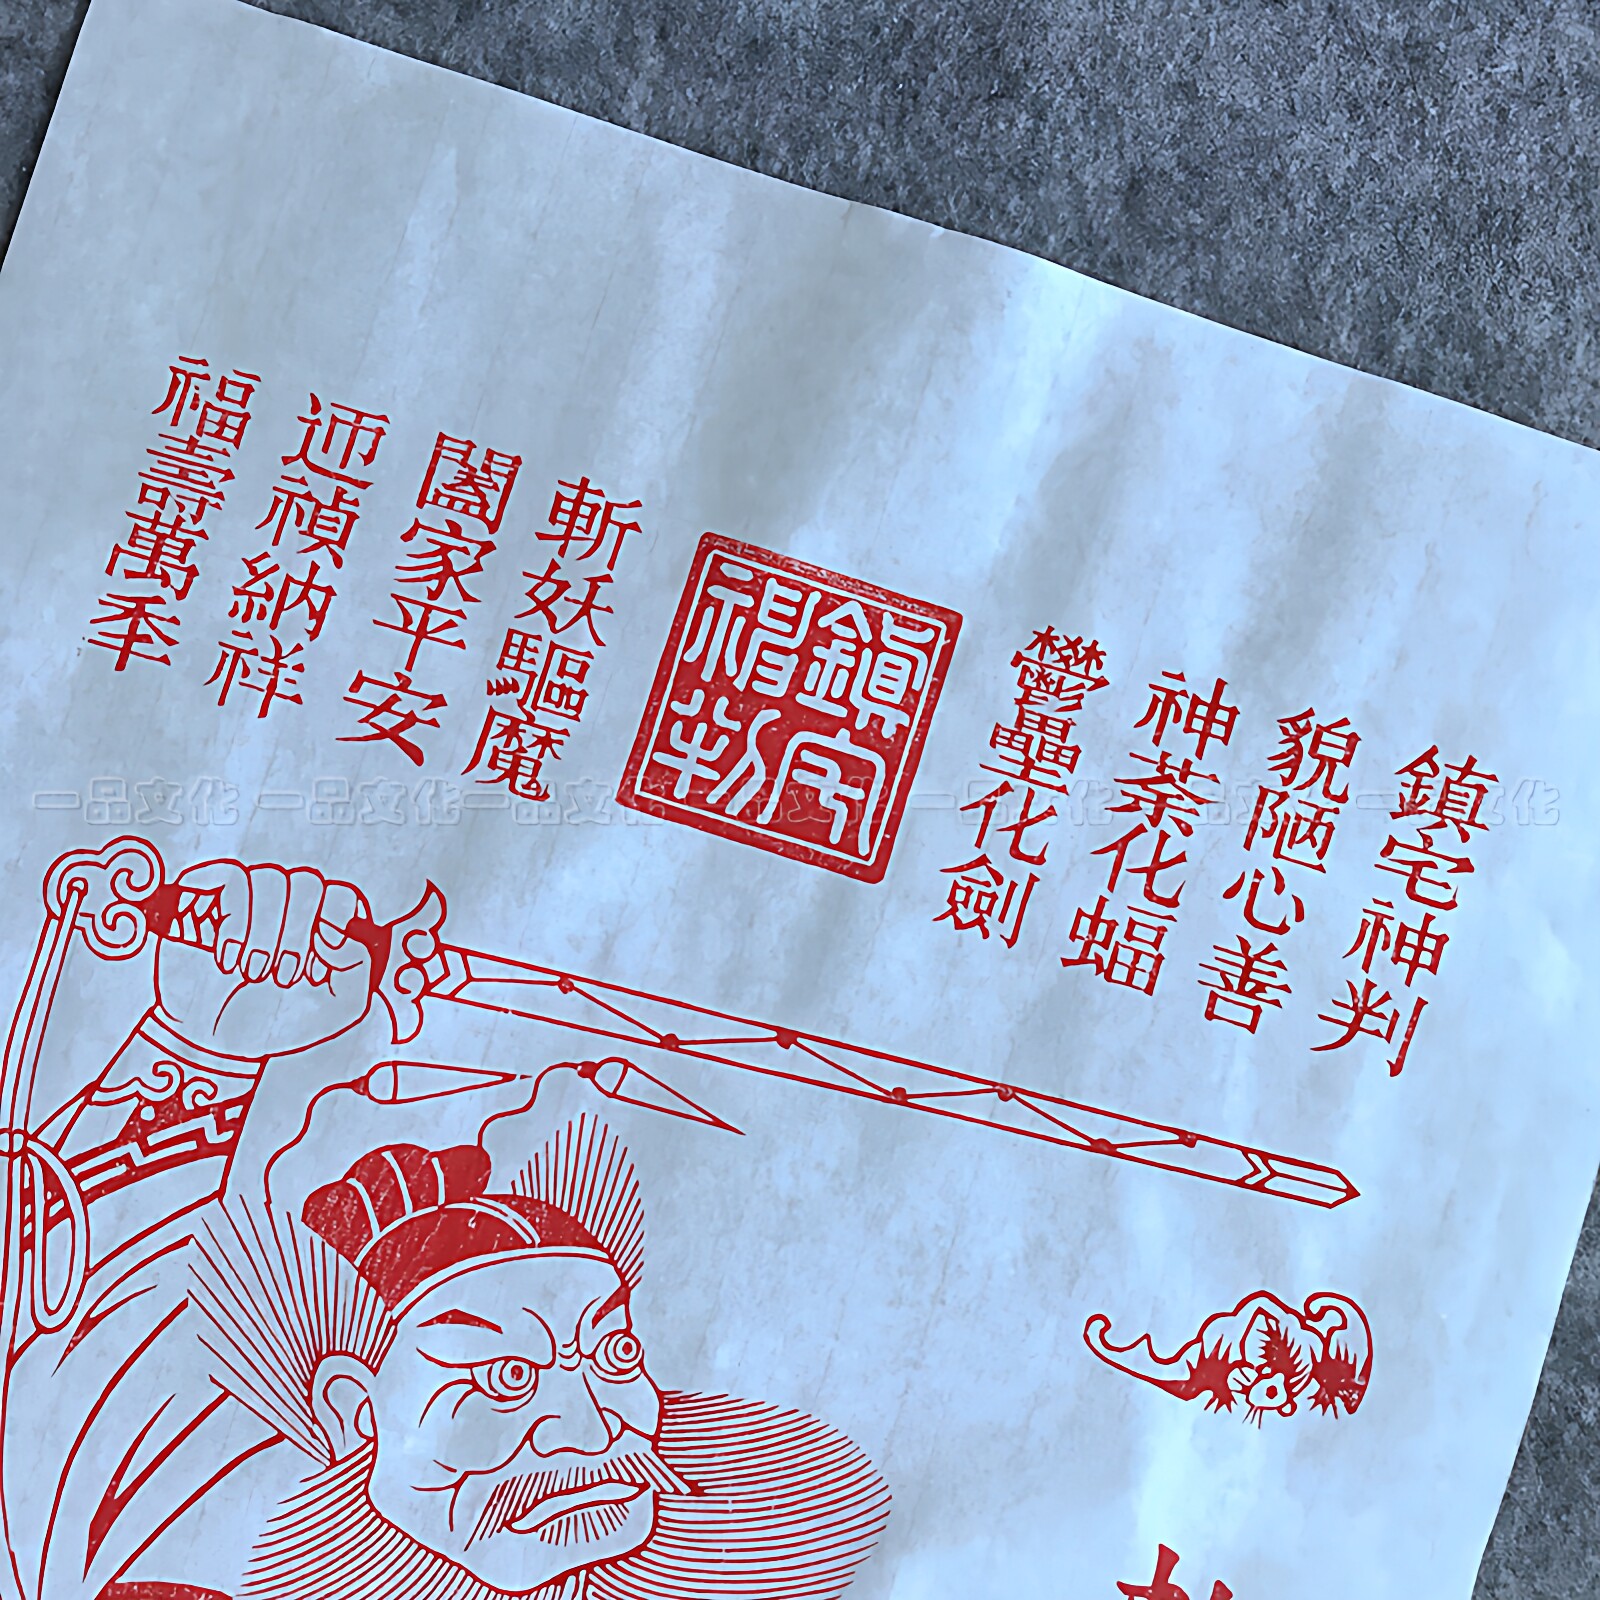 鎮宅神判
貌陋心善
神荼化蝠
鬱壘化劍
鎮宅
神判
斬妖驅魔
闔家平安
迊禎納祥
福壽萬季
一品文化 一品文化 一品文化 一品文化 一品文化 一品文化 一品文化